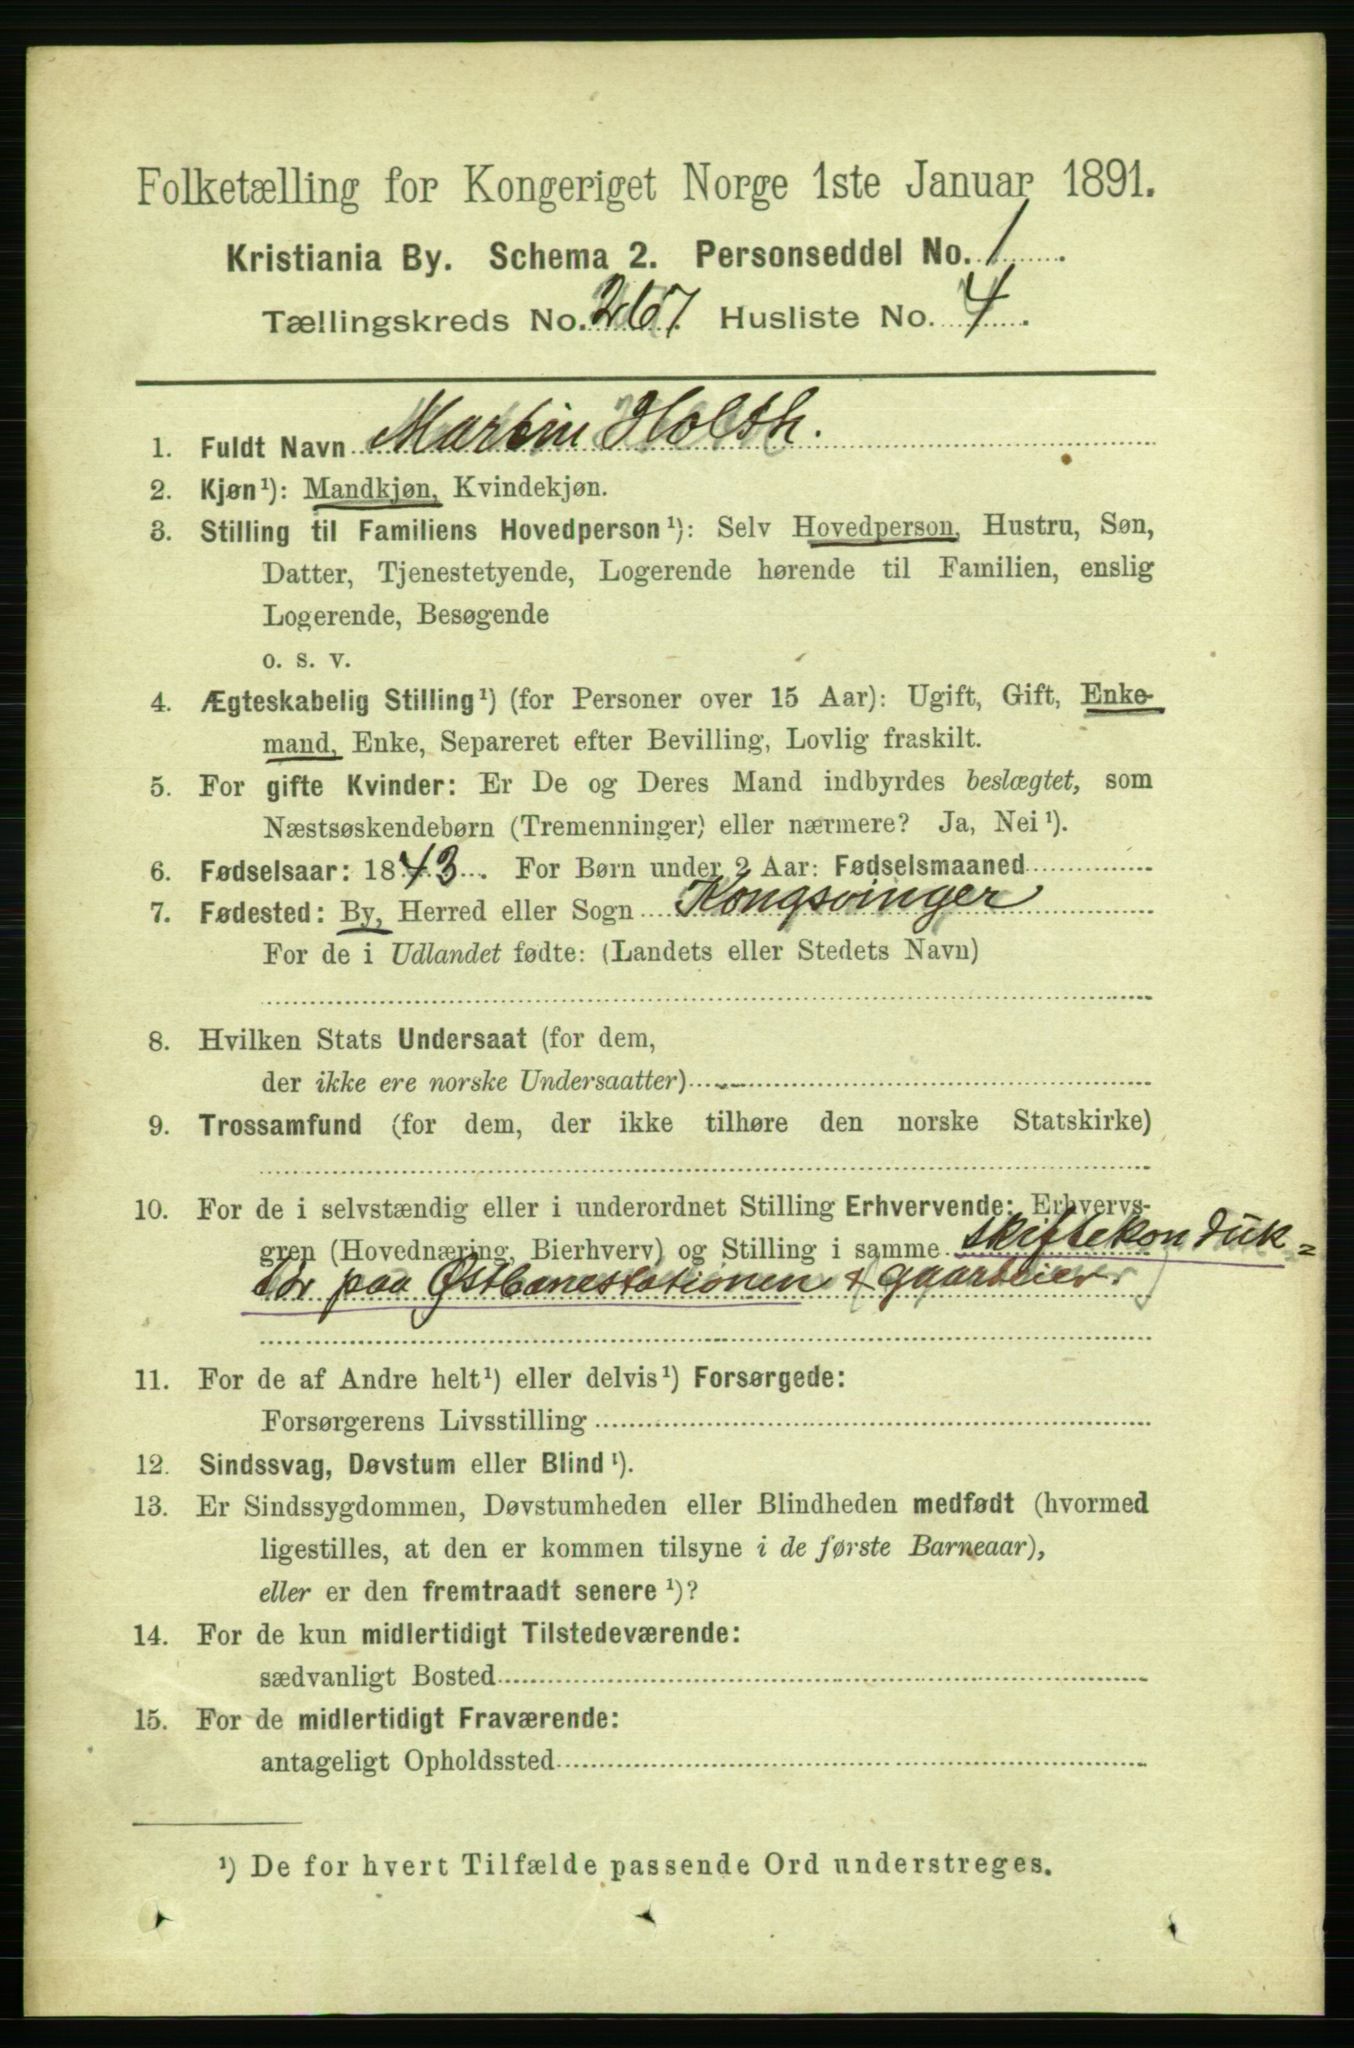 Folketælling for Kongeriget Norge 1ste Januar 1891.
Kristiania By. Schema 2. Personseddel No. 1
Tællingskreds No. 267. Husliste No. 4.
1. Fuldt Navn Martin Holth.
2. Kjøn¹): Mandkjøn, Kvindekjøn.
3. Stilling til Familiens Hovedperson¹): Selv Hovedperson, Hustru, Søn,
Datter, Tjenestetyende, Logerende hørende til Familien, enslig
Logerende, Besøgende
o. s. v.
4. Ægteskabelig Stilling¹) (for Personer over 15 Aar): Ugift, Gift, Enke-
mand, Enke, Separeret efter Bevilling, Lovlig fraskilt.
5. For gifte Kvinder: Er De og Deres Mand indbyrdes beslægtet, som
Næstsøskendebørn (Tremenninger) eller nærmere? Ja, Nei¹).
6. Fødselsaar: 1843. For Børn under 2 Aar: Fødselsmaaned
7. Fødested: By, Herred eller Sogn Kongsvinger
For de i Udlandet fødte: (Landets eller Stedets Navn)
8. Hvilken Stats Undersaat (for dem,
der ikke ere norske Undersaatter)
9. Trossamfund (for dem, der ikke tilhøre den norske Statskirke)
10. For de i selvstændig eller i underordnet Stilling Erhvervende: Erhvervs-
gren (Hovednæring, Bierhverv) og Stilling i samme skiftekonduk-
tør paa Østbanestationen & gaardeier
11. For de af Andre helt¹) eller delvis¹) Forsørgede:
Forsørgerens Livsstilling
12. Sindssvag, Døvstum eller Blind¹).
13. Er Sindssygdommen, Døvstumheden eller Blindheden medfødt (hvormed
ligestilles, at den er kommen tilsyne i de første Barneaar),
eller er den fremtraadt senere¹)?
14. For de kun midlertidigt Tilstedeværende:
sædvanligt Bosted
15. For de midlertidigt Fraværende:
antageligt Opholdssted
¹) De for hvert Tilfælde passende Ord understreges.